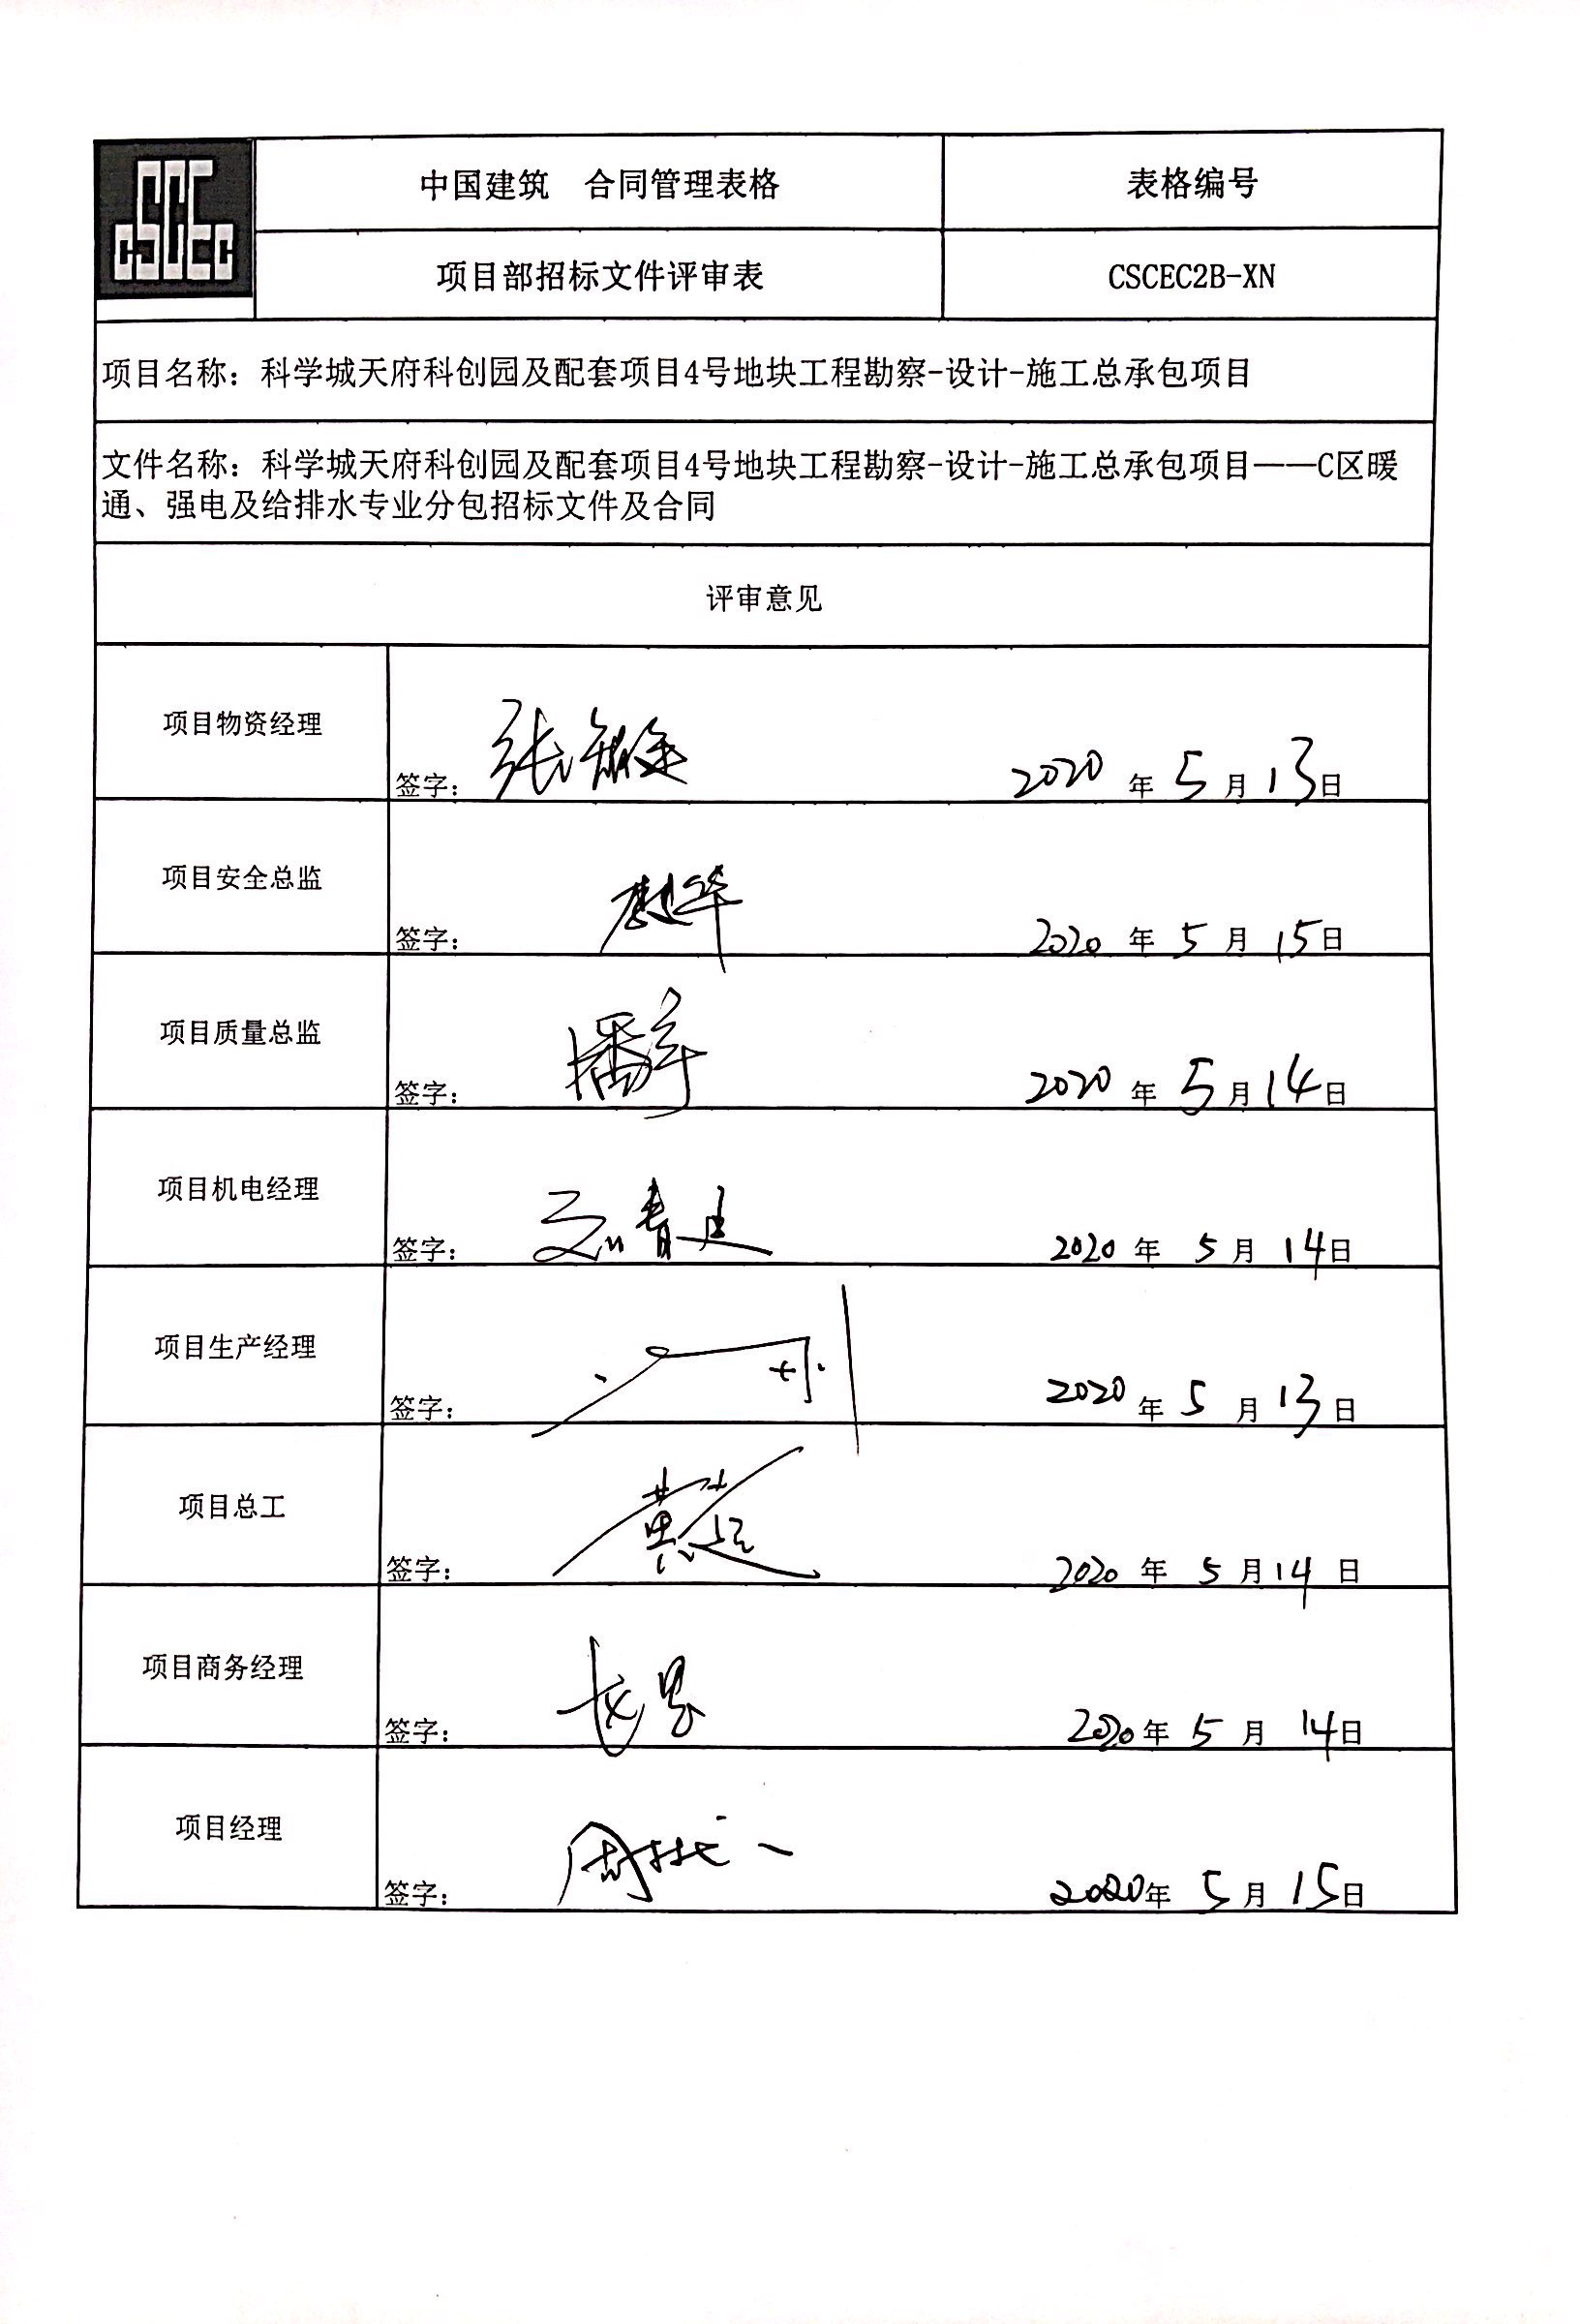 中国建筑 合同管理表格
表格编号
项目部招标文件评审表
CSCEC2B-XN
项目名称：科学城天府科创园及配套项目4号地块工程勘察-设计-施工总承包项目
文件名称：科学城天府科创园及配套项目4号地块工程勘察-设计-施工总承包项目——C区暖
通、强电及给排水专业分包招标文件及合同
评审意见
项目物资经理
签字： 张 2020 年 5 月 13日
项目安全总监
签字： 2020 年 5 月 15日
项目质量总监
签字： 2020 年 5 月 14日
项目机电经理
签字： 2020 年 5 月 14日
项目生产经理
签字： 2020 年 5 月 13日
项目总工
签字： 黄超 2020 年 5 月 14 日
项目商务经理
签字： 2020年 5 月 14日
项目经理
签字： 周 2020年 5 月 15日